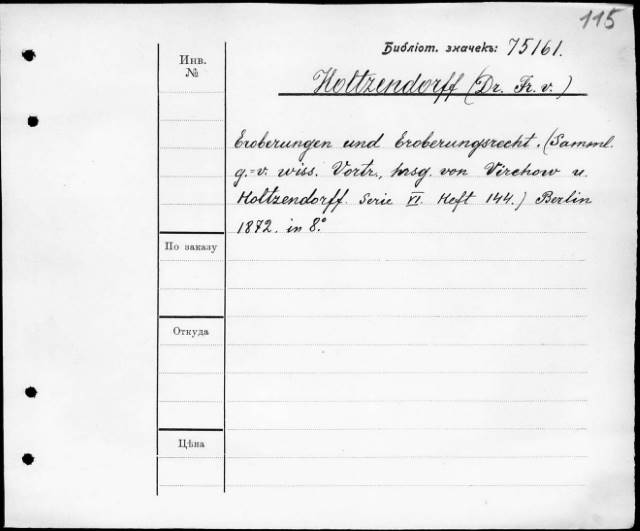 115
Библіот. значекъ: 75161.
Инв.
№
Holtzendorff (Dr. Fr. v.)
Eroberungen und Eroberungsrecht. (Samml.
g.-v. wiss. Vortr., hrsg. von Virchow u.
Holtzendorff. Serie VI. Heft 144.) Berlin
1872. in 8.°
По заказу
Откуда
Цѣна